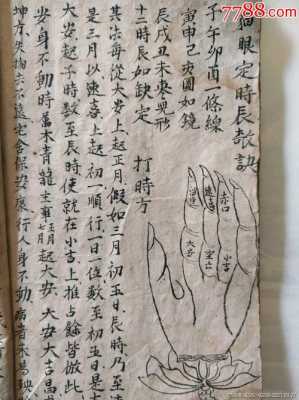 眼定時長訣
子午卯酉一條線
寅申巳亥圓如鏡
辰戌丑未枣兒形
十二時長如缺定 打時方
其法每從大安上起正月假如三月初五日長時乃至
是三月以速喜上起初一順行一日一位數至初五日是
大安起子時數至長時便就在小吉上推占餘皆倣此
安身不動時萬木青龍主事五七月起大安 大安大吉昌
坤方失物去不遠宅舍保安康行人身不動病者未
留連
速喜
赤口
大安
空亡
小吉
7788.com